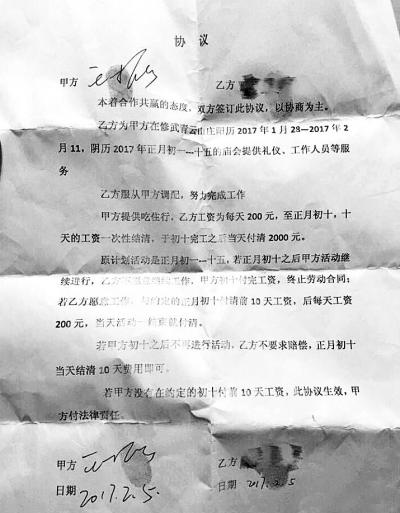 协 议
甲方 乙方
本着合作共赢的态度，双方签订此协议，以协商为主。
乙方为甲方在修武青云山庄阳历 2017 年 1 月 28—2017 年 2
月 11，阴历 2017 年正月初一---十五的庙会提供礼仪、工作人员等服
务
乙方服从甲方调配，努力完成工作
甲方提供吃住行，乙方工资为每天 200 元，至正月初十，十
天的工资一次性结清，于初十完工之后当天付清 2000 元。
原计划活动是正月初一---十五，若正月初十之后甲方活动继
续进行，乙方不愿意继续工作，甲方初十付完工资，终止劳动合同；
若乙方愿意工作，与约定的正月初十付清前 10 天工资，后每天工资
200 元，当天活动一结束就付清。
若甲方初十之后不再进行活动，乙方不要求赔偿，正月初十
当天结清 10 天费用即可。
若甲方没有在约定的初十付前 10 天工资，此协议生效，甲
方付法律责任。
甲方 乙方
日期 2017.2.5. 日期 2017.2.5